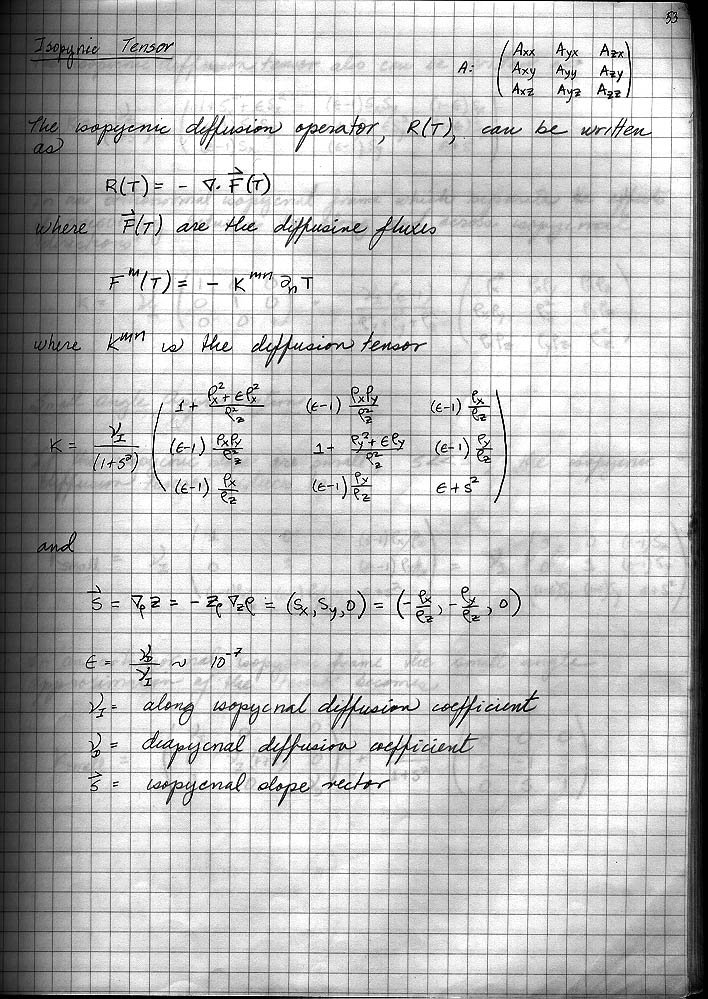 53
Isopynic Tensor
A: ( Axx Ayx Azx )
( Axy Ayy Azy )
( Axz Ayz Azz )
The isopycnic diffusion operator, R(T), can be written
as
R(T) = - ∇·F⃗(T)
where F⃗(T) are the diffusive fluxes
F^m(T) = - K^mn ∂_n T
where K^mn is the diffusion tensor
K = ν_I/(1+S²) ( 1 + (ρ_x² + ερ_x²)/ρ_z² (ε-1) ρ_xρ_y/ρ_z² (ε-1) ρ_x/ρ_z )
( (ε-1) ρ_xρ_y/ρ_z² 1 + (ρ_y² + ερ_y)/ρ_z² (ε-1) ρ_y/ρ_z )
( (ε-1) ρ_x/ρ_z (ε-1) ρ_y/ρ_z ε + S² )
and
S⃗ = ∇_ρ z = - z_ρ ∇_z ρ = (S_x, S_y, 0) = (-ρ_x/ρ_z, -ρ_y/ρ_z, 0)
ε = ν_D/ν_I ~ 10^-7
ν_I = along isopycnal diffusion coefficient
ν_D = diapycnal diffusion coefficient
S⃗ = isopycnal slope vector